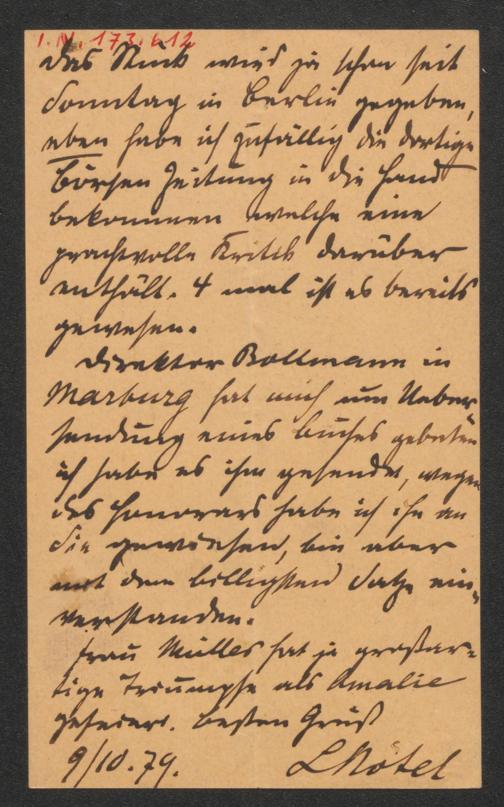 I.N. 173.612
das Stück wird ja schon seit
Sonntag in Berlin gegeben,
eben habe ich zufällig die dortige
Börsen Zeitung in die Hand
bekommen welche eine
prachtvolle Kritik darüber
enthält. 4 mal ist es bereits
gewesen.
Direktor Bollmann in
Marburg hat mich um Ueber
sendung eines Buches gebeten
ich habe es ihm gesendet, wegen
des Honorars habe ich ihn an
Sie gewiesen, bin aber
mit dem billigsten Satze ein-
verstanden.
Frau Müller hat ja großar-
tige Triumpfe als Amalie
gefeiert. Besten Gruß
9/10.79. L Nötel